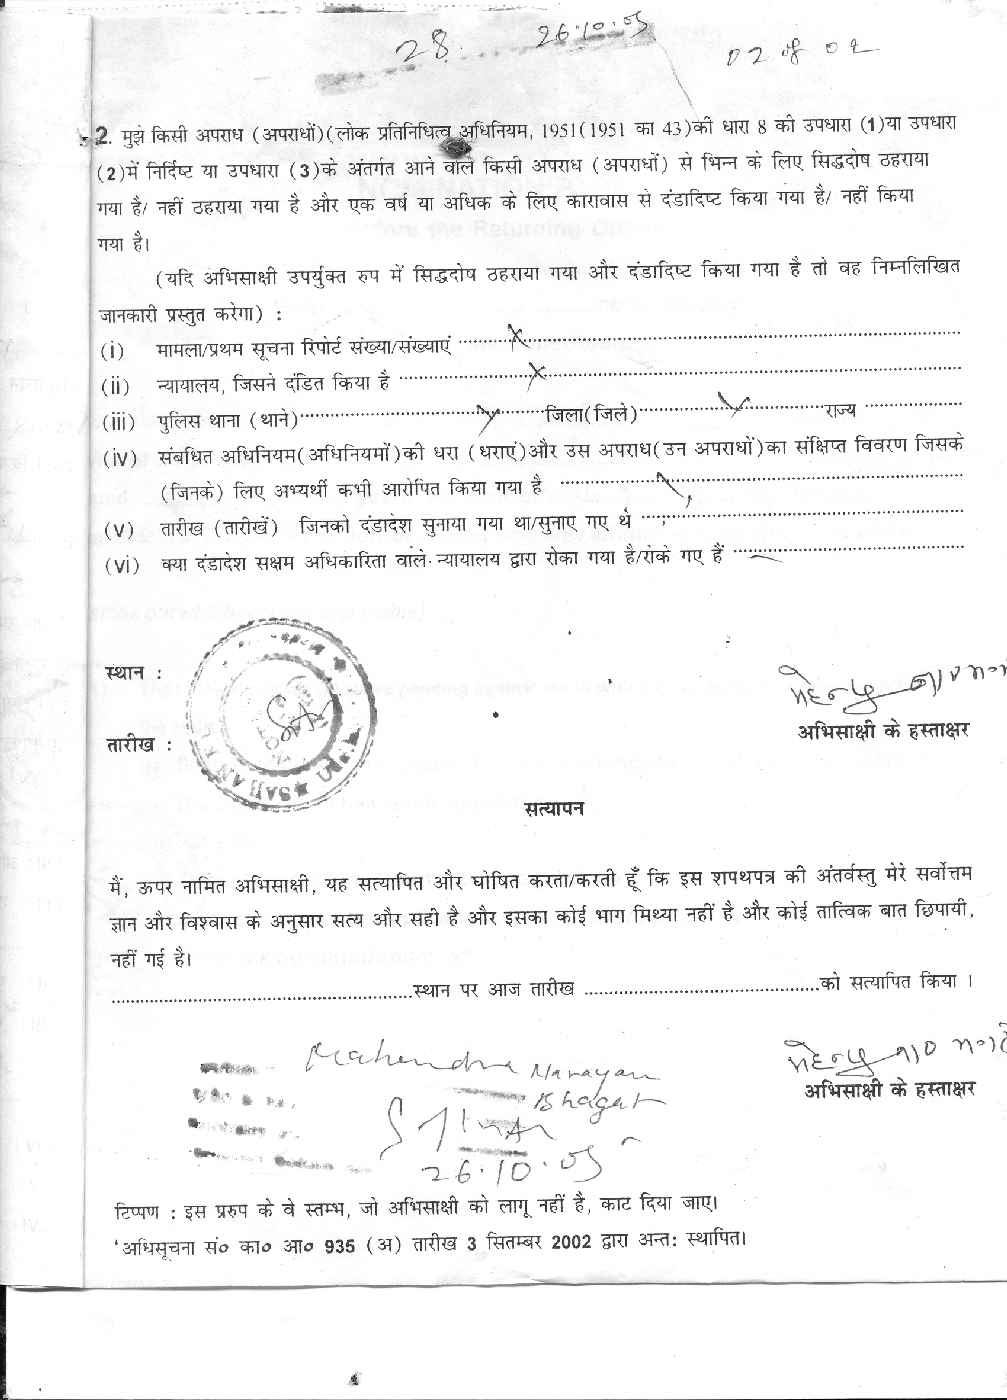 28 26.10.05
02 of 02
2. मुझे किसी अपराध (अपराधों)(लोक प्रतिनिधित्व अधिनियम, 1951(1951 का 43)की धारा 8 की उपधारा (1)या उपधारा
(2)में निर्दिष्ट या उपधारा (3)के अंतर्गत आने वाले किसी अपराध (अपराधों) से भिन्न के लिए सिद्धदोष ठहराया
गया है/ नहीं ठहराया गया है और एक वर्ष या अधिक के लिए कारावास से दंडादिष्ट किया गया है/ नहीं किया
गया है।
(यदि अभिसाक्षी उपर्युक्त रुप में सिद्धदोष ठहराया गया और दंडादिष्ट किया गया है तो वह निम्नलिखित
जानकारी प्रस्तुत करेगा) :
(i) मामला/प्रथम सूचना रिपोर्ट संख्या/संख्याएं ........ x ........
(ii) न्यायालय, जिसने दंडित किया है ........ x ........
(iii) पुलिस थाना (थाने)........ x ........जिला(जिले)........ x ........राज्य ........
(iv) संबधित अधिनियम(अधिनियमों)की धरा (धराएं)और उस अपराध(उन अपराधों)का संक्षिप्त विवरण जिसके
(जिनके) लिए अभ्यर्थी कभी आरोपित किया गया है ........
(v) तारीख (तारीखें) जिनको दंडादेश सुनाया गया था/सुनाए गए थे ........
(vi) क्या दंडादेश सक्षम अधिकारिता वाले न्यायालय द्वारा रोका गया है/रोके गए हैं ........
स्थान :
अभिसाक्षी के हस्ताक्षर
तारीख :
SAJJAN
सत्यापन
मैं, ऊपर नामित अभिसाक्षी, यह सत्यापित और घोषित करता/करती हूँ कि इस शपथपत्र की अंतर्वस्तु मेरे सर्वोत्तम
ज्ञान और विश्वास के अनुसार सत्य और सही है और इसका कोई भाग मिथ्या नहीं है और कोई तात्विक बात छिपायी,
नहीं गई है।
........स्थान पर आज तारीख ........को सत्यापित किया ।
Mahendra Narayan
Bhagat
26.10.05
अभिसाक्षी के हस्ताक्षर
टिप्पण : इस प्ररुप के वे स्तम्भ, जो अभिसाक्षी को लागू नहीं है, काट दिया जाए।
'अधिसूचना सं० का० आ० 935 (अ) तारीख 3 सितम्बर 2002 द्वारा अन्त: स्थापित।